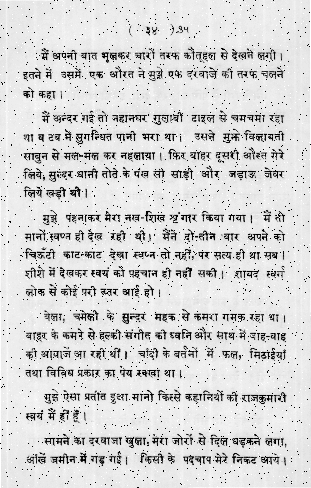 ( ३४ ) ३५
मैं अपनी बात भूलकर चारों तरफ कौतूहल से देखने लगी ।
इतने में उसमें एक औरत ने मुझे एक दरवाजे की तरफ चलने
को कहा ।
मैं अन्दर गई तो नहानघर गुलाबी टाइल से चमचमा रहा
था व टब में सुगन्धित पानी भरा था । उसने मुझे विलायती
साबुन से मल-मल कर नहलाया । फिर बाहर दूसरी औरत मेरे
लिये, सुन्दर धानी तोते के पंख सी साड़ी और जड़ाऊ जेवर
लिये खड़ी थी ।
मुझे पहनाकर मेरा नख-शिख श्रृंगार किया गया । मैं तो
मानों स्वप्न ही देख रही थी । मैंने दो-तीन बार अपने को
चिऊँटी काट-काट देखा स्वप्न तो नहीं, पर सत्य ही था सब ।
शीशे में देखकर स्वयं को पहचान ही नहीं सकी । शायद स्वर्ग
लोक से कोई परी उतर आई हो ।
बेला, चमेली के सुन्दर महक से कमरा गमक रहा था ।
बाहर के कमरे से हल्की संगीत की ध्वनि और साथ में वाह-वाह
की आवाजे आ रही थीं । चांदी के बर्तनों में फल, मिठाईयां
तथा विविध प्रकार का पेय रक्खा था ।
मुझे ऐसा प्रतीत हुआ मानो किस्से कहानियों की राजकुमारी
स्वयं मैं ही हूँ ।
सामने का दरवाजा खुला, मेरा जोरों से दिल धड़कने लगा,
आंखें जमीन में गड़ गई । किसी के पदचाप मेरे निकट आये ।